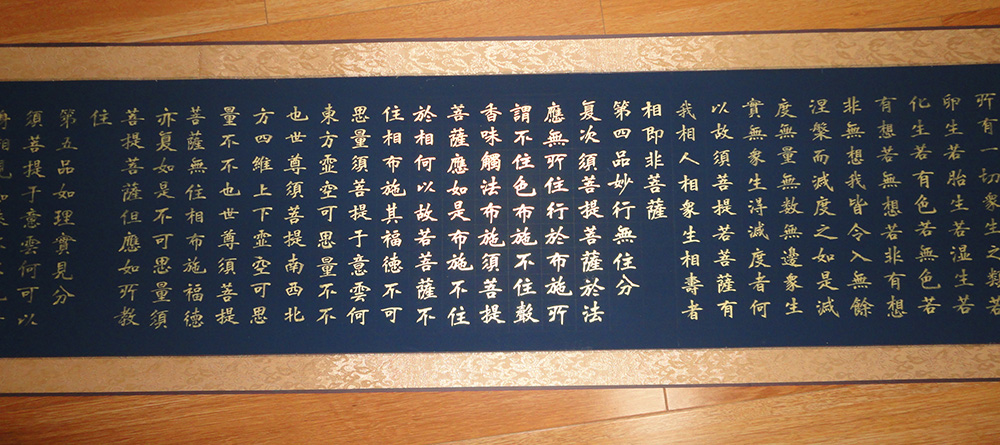 所有一切衆生之類若
卵生若胎生若湿生若
化生若有色若無色若
有想若無想若非有想
非無想我皆令入無餘
涅槃而滅度之如是滅
度無量無數無邊衆生
實無衆生得滅度者何
以故須菩提若菩薩有
我相人相衆生相壽者
相即非菩薩
第四品妙行無住分
复次須菩提菩薩於法
應無所住行於布施所
謂不住色布施不住聲
香味觸法布施須菩提
菩薩應如是布施不住
於相何以故若菩薩不
住相布施其福德不可
思量須菩提于意雲何
東方虛空可思量不不
也世尊須菩提南西北
方四維上下虛空可思
量不不也世尊須菩提
菩薩無住相布施福德
亦复如是不可思量須
菩提菩薩但應如所教
住
第五品如理實見分
須菩提于意雲何可以